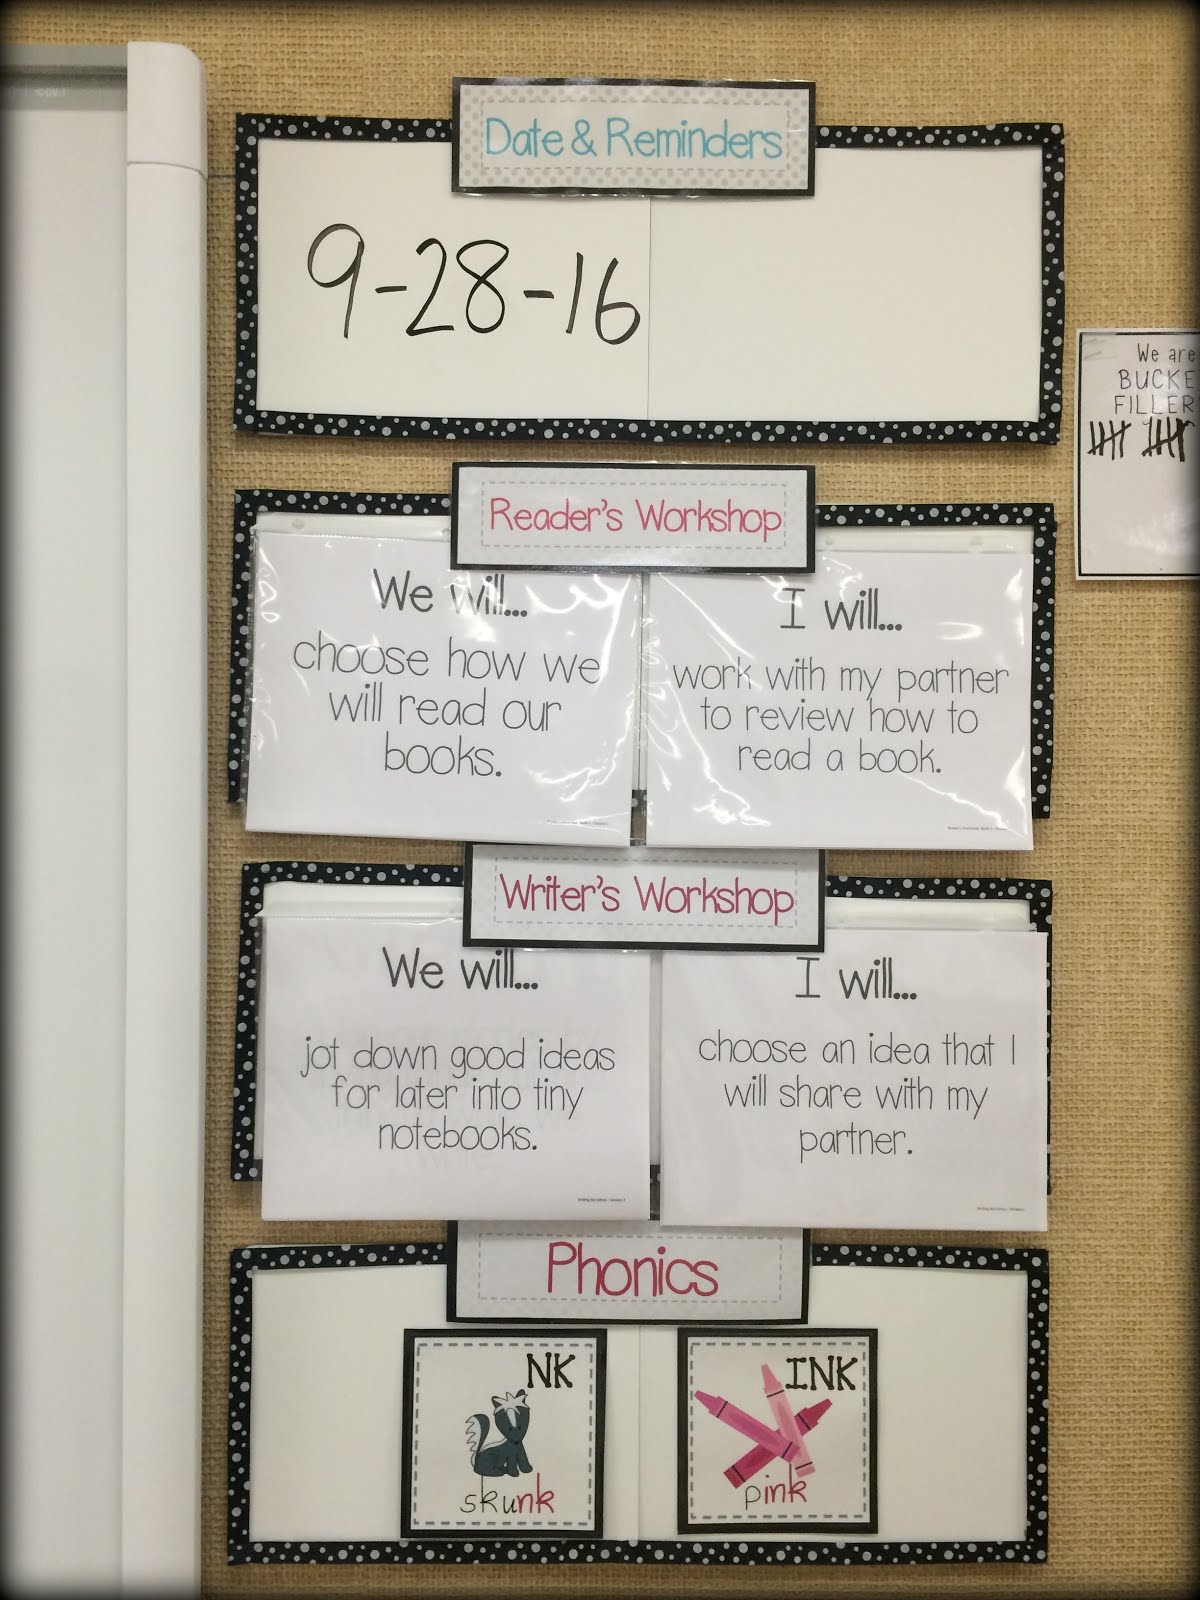 Date & Reminders
9-28-16
We are
BUCKE
FILLER
Reader's Workshop
We will...
choose how we
will read our
books.
I will...
work with my partner
to review how to
read a book.
Writer's Workshop
We will...
jot down good ideas
for later into tiny
notebooks.
I will...
choose an idea that I
will share with my
partner.
Phonics
NK
skunk
INK
pink